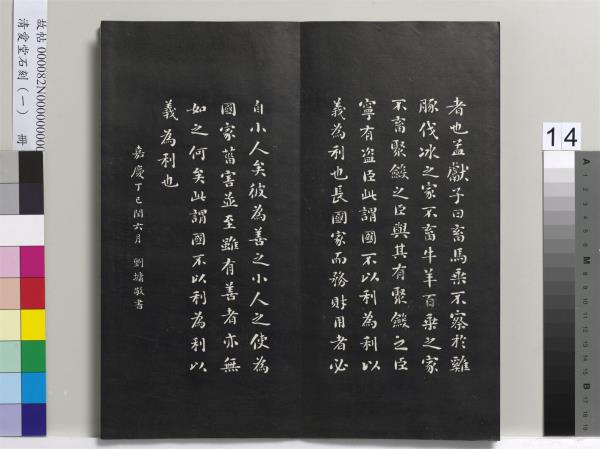 者也孟獻子曰畜馬乘不察於雞
豚伐冰之家不畜牛羊百乘之家
不畜聚斂之臣與其有聚斂之臣
寧有盜臣此謂國不以利為利以
義為利也長國家而務財用者必
自小人矣彼為善之小人之使為
國家菑害並至雖有善者亦無
如之何矣此謂國不以利為利以
義為利也
嘉慶丁巳閏六月 劉墉敬書
故帖 000082N000000000
清愛堂石刻(一) 冊
14
A
M
B